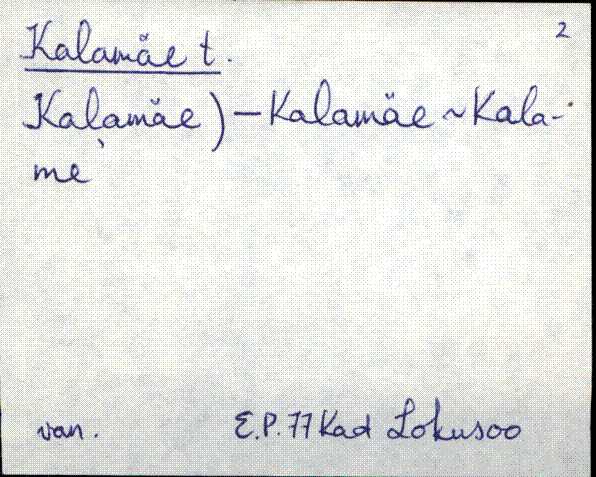 2
Kalamäe t.
Kalamäe) – Kalamäe ~ Kala-
me
van. E.P. 77 Kad Lokusoo